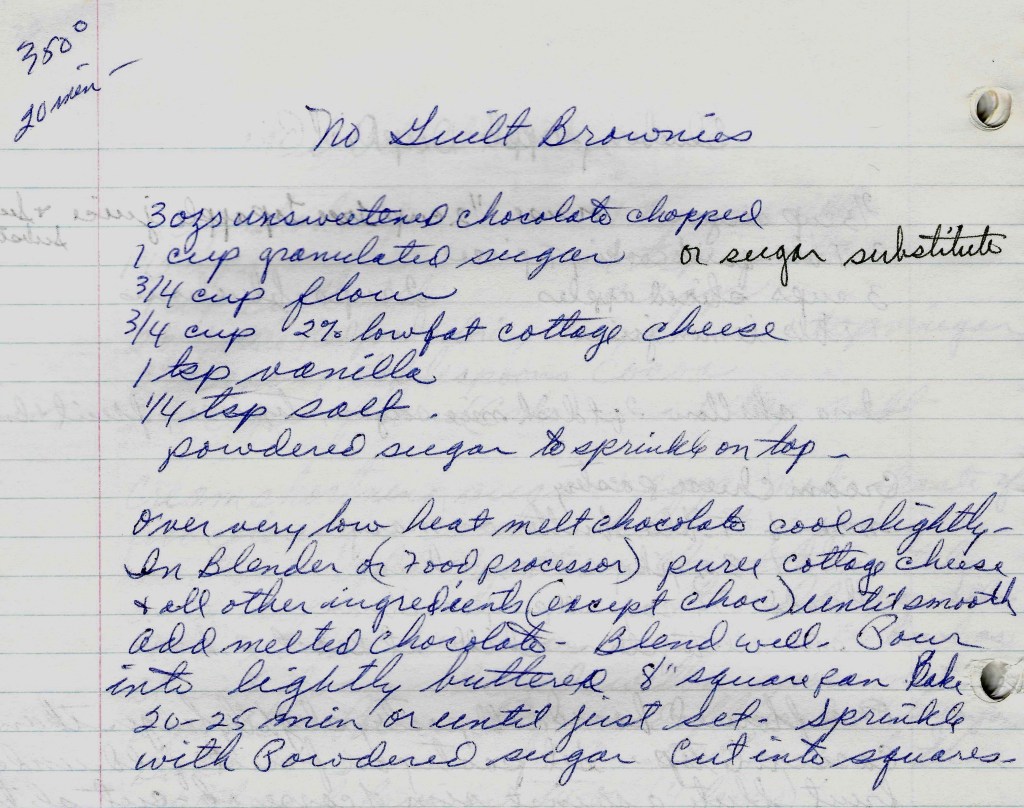 350°
20 min -
No Guilt Brownies
3 ozs unsweetened chocolate chopped
1 cup granulated sugar or sugar substitute
3/4 cup flour
3/4 cup 2% lowfat cottage cheese
1 tsp vanilla
1/4 tsp salt.
powdered sugar to sprinkle on top -
Over very low heat melt chocolate cool slightly -
In Blender or (Food processor) puree cottage cheese
& all other ingredients (except choc) until smooth
add melted chocolate - Blend well. Pour
into lightly buttered 8" square pan Bake
20-25 min or until just set. Sprinkle
with Powdered sugar Cut into squares -